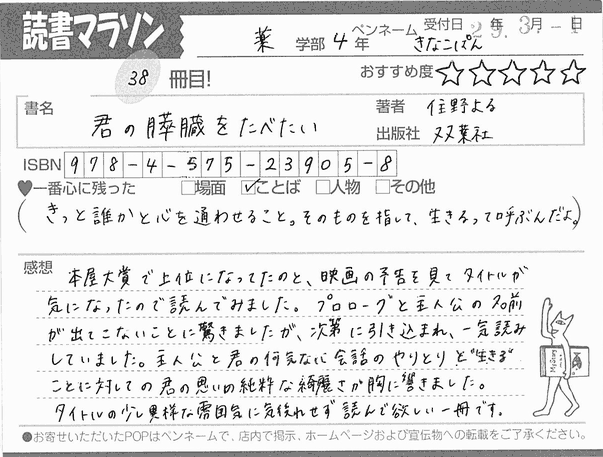 読書マラソン
薬 学部 4 年 ペンネーム きなこぱん 受付日 29年 3月 -1日
38 冊目!
おすすめ度 ☆☆☆☆☆
書名 君の膵臓をたべたい
著者 住野よる
出版社 双葉社
ISBN 978-4-575-23905-8
♥一番心に残った □場面 ☑ことば □人物 □その他
(きっと誰かと心を通わせること。そのものを指して、生きるって呼ぶんだよ。)
感想
本屋大賞で上位になってたのと、映画の予告を見てタイトルが
気になったので読んでみました。プロローグと主人公の名前
が出てこないことに驚きましたが、次第に引き込まれ、一気読み
していました。主人公と君の何気ない会話のやりとりと"生きる"
ことに対しての君の思いの純粋な綺麗さが胸に響きました。
タイトルの少し異様な雰囲気に気後れせず読んで欲しい一冊です。
●お寄せいただいたPOPはペンネームで、店内で掲示、ホームページおよび宣伝物への転載をご了承ください。